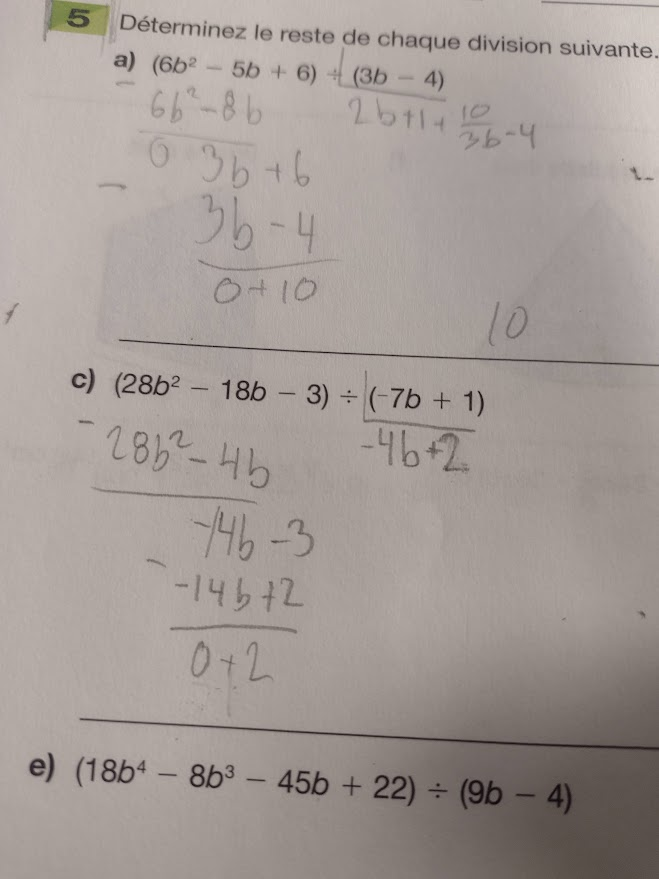 5 Déterminez le reste de chaque division suivante.
a) (6b² − 5b + 6) ÷ (3b − 4)
− 6b² − 8b 2b+1+ 10/3b−4
0 3b + 6
− 3b − 4
0 + 10
10
c) (28b² − 18b − 3) ÷ (−7b + 1)
− 28b² − 4b −4b+2
−14b − 3
− −14b + 2
0 + 2
e) (18b⁴ − 8b³ − 45b + 22) ÷ (9b − 4)